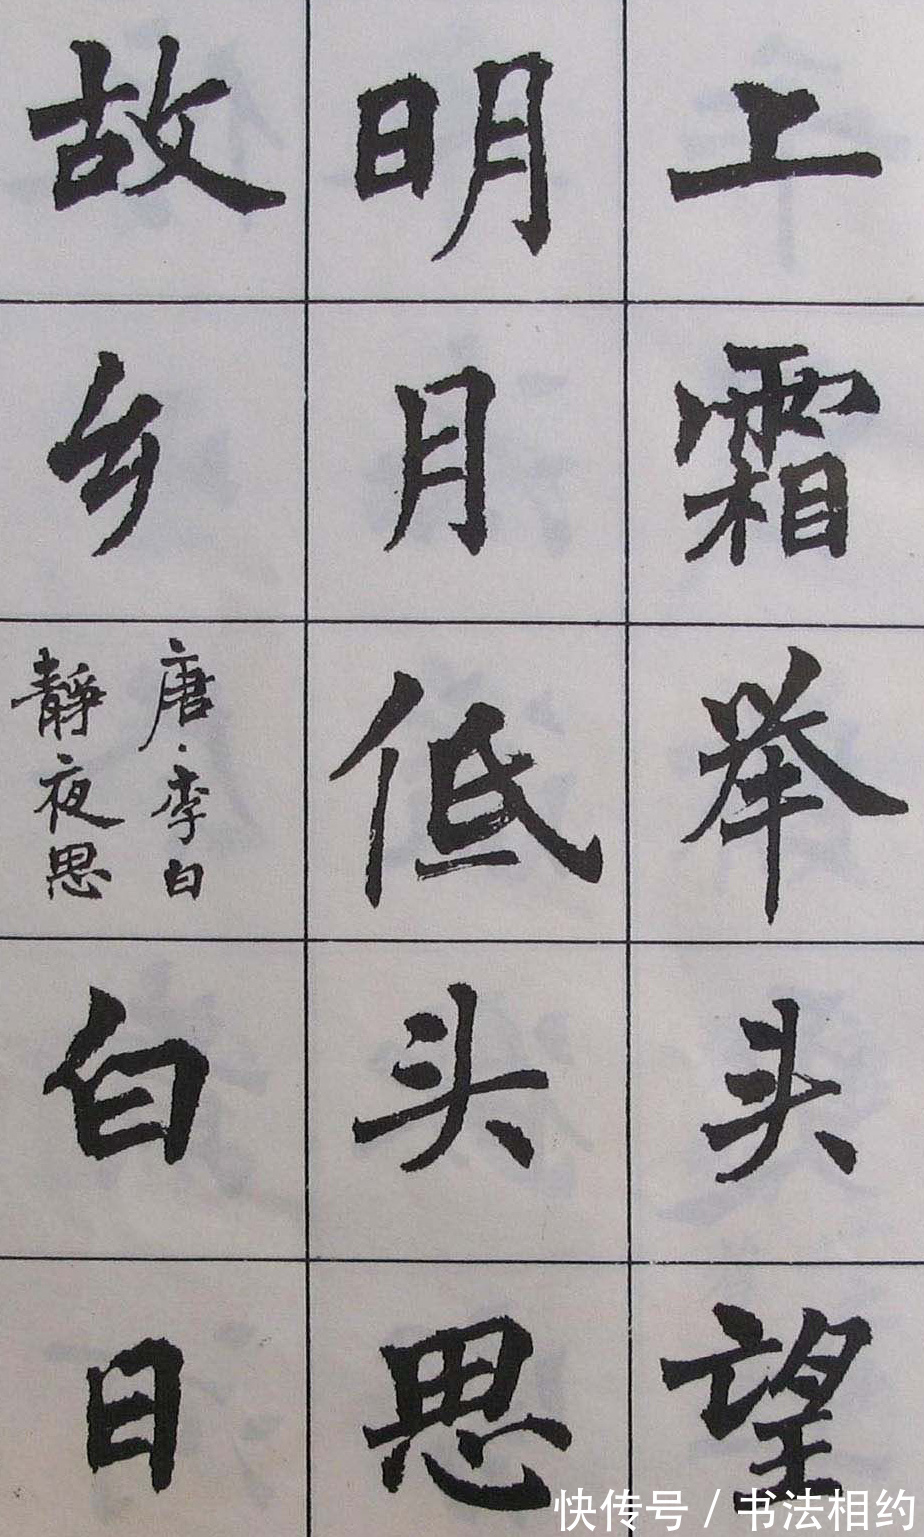 上霜举头望
明月低头思
故乡
唐·李白
靜夜思
白日
快传号/书法相约